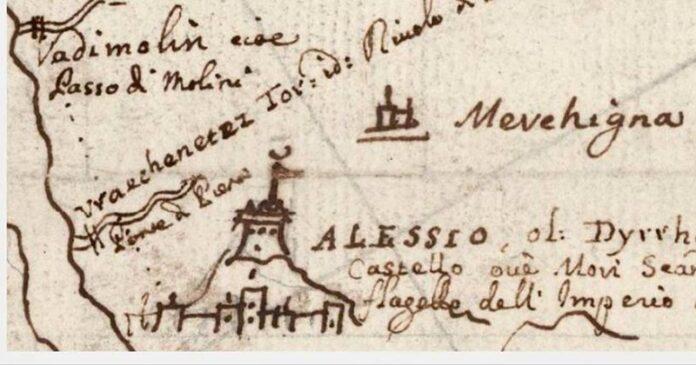 Vadimolin cioe
Passo di Molini
Vraechenetez Tor: id: Rivolo di
Ponte di Piera
Merchigna
ALESSIO, ol: Dyrrh
Castello ouè Mori Scan
flagello dell' Imperio